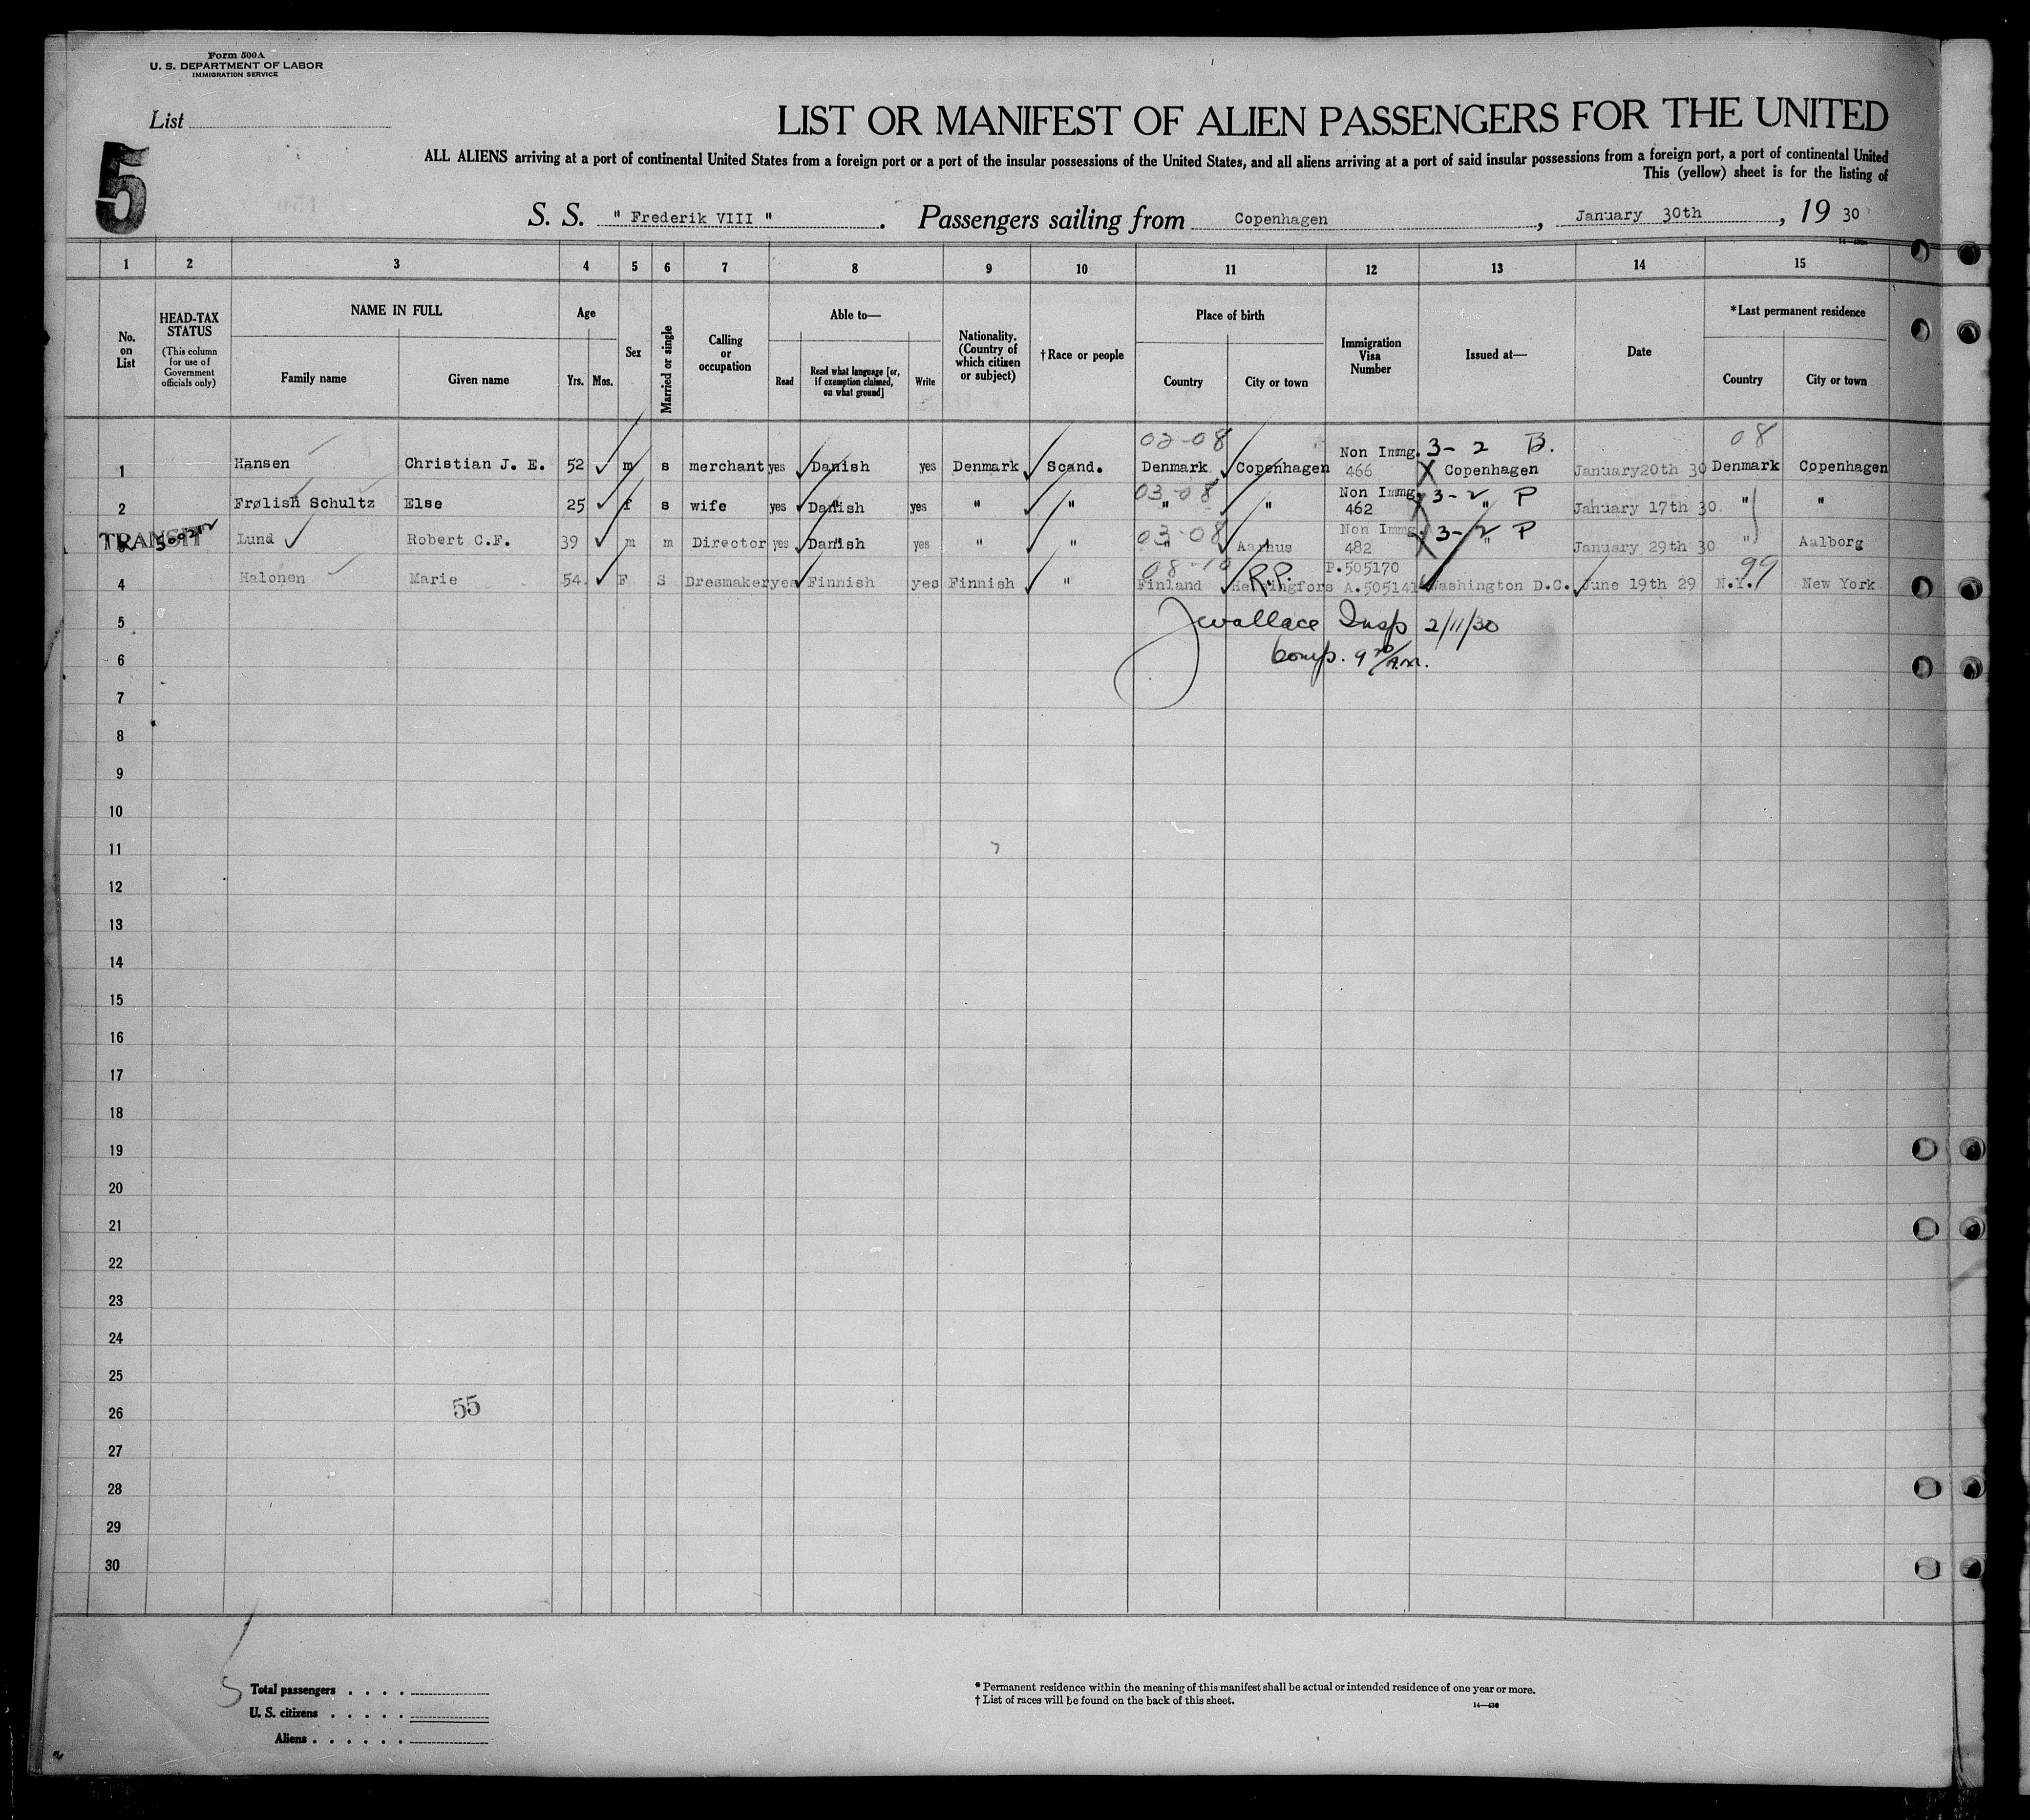 Form 500A
U. S. DEPARTMENT OF LABOR
IMMIGRATION SERVICE
List
5
LIST OR MANIFEST OF ALIEN PASSENGERS FOR THE UNITED
ALL ALIENS arriving at a port of continental United States from a foreign port or a port of the insular possessions of the United States, and all aliens arriving at a port of said insular possessions from a foreign port, a port of continental United
This (yellow) sheet is for the listing of
S. S. " Frederik VIII ". Passengers sailing from Copenhagen, January 30th, 19 30
1 2 3 4 5 6 7 8 9 10 11 12 13 14 15
No. on List
HEAD-TAX STATUS (This column for use of Government officials only)
NAME IN FULL
Family name Given name
Age
Yrs. Mos.
Sex
Married or single
Calling or occupation
Able to—
Read
Read what language [or, if exemption claimed, on what ground]
Write
Nationality. (Country of which citizen or subject)
†Race or people
Place of birth
Country City or town
Immigration Visa Number
Issued at—
Date
*Last permanent residence
Country City or town
02-08 Non Immg. 3-2 B. 08
1 Hansen Christian J. E. 52 m s merchant yes Danish yes Denmark Scand. Denmark Copenhagen 466 Copenhagen January20th 30 Denmark Copenhagen
03-08 Non Immg 3-2 P
2 Frølish Schultz Else 25 f s wife yes Danish yes " " " " 462 " January 17th 30 " "
03-08 Non Immg 3-2 P
TRANSIT Lund Robert C.F. 39 m m Director yes Danish yes " " " Aarhus 482 " January 29th 30 " Aalborg
08-10 R.P. P.505170 99
4 Halonen Marie 54 F S Dresmaker yes Finnish yes Finnish " Finland Helsingfors A.505141 Washington D.C. June 19th 29 N.Y. New York
5 J Wallace Insp 2/11/30
6 Comp. 9 30/A.M.
7
8
9
10
11
12
13
14
15
16
17
18
19
20
21
22
23
24
25
26 55
27
28
29
30
Total passengers . . . .
U. S. citizens . . . . .
Aliens . . . . . .
* Permanent residence within the meaning of this manifest shall be actual or intended residence of one year or more.
† List of races will be found on the back of this sheet.